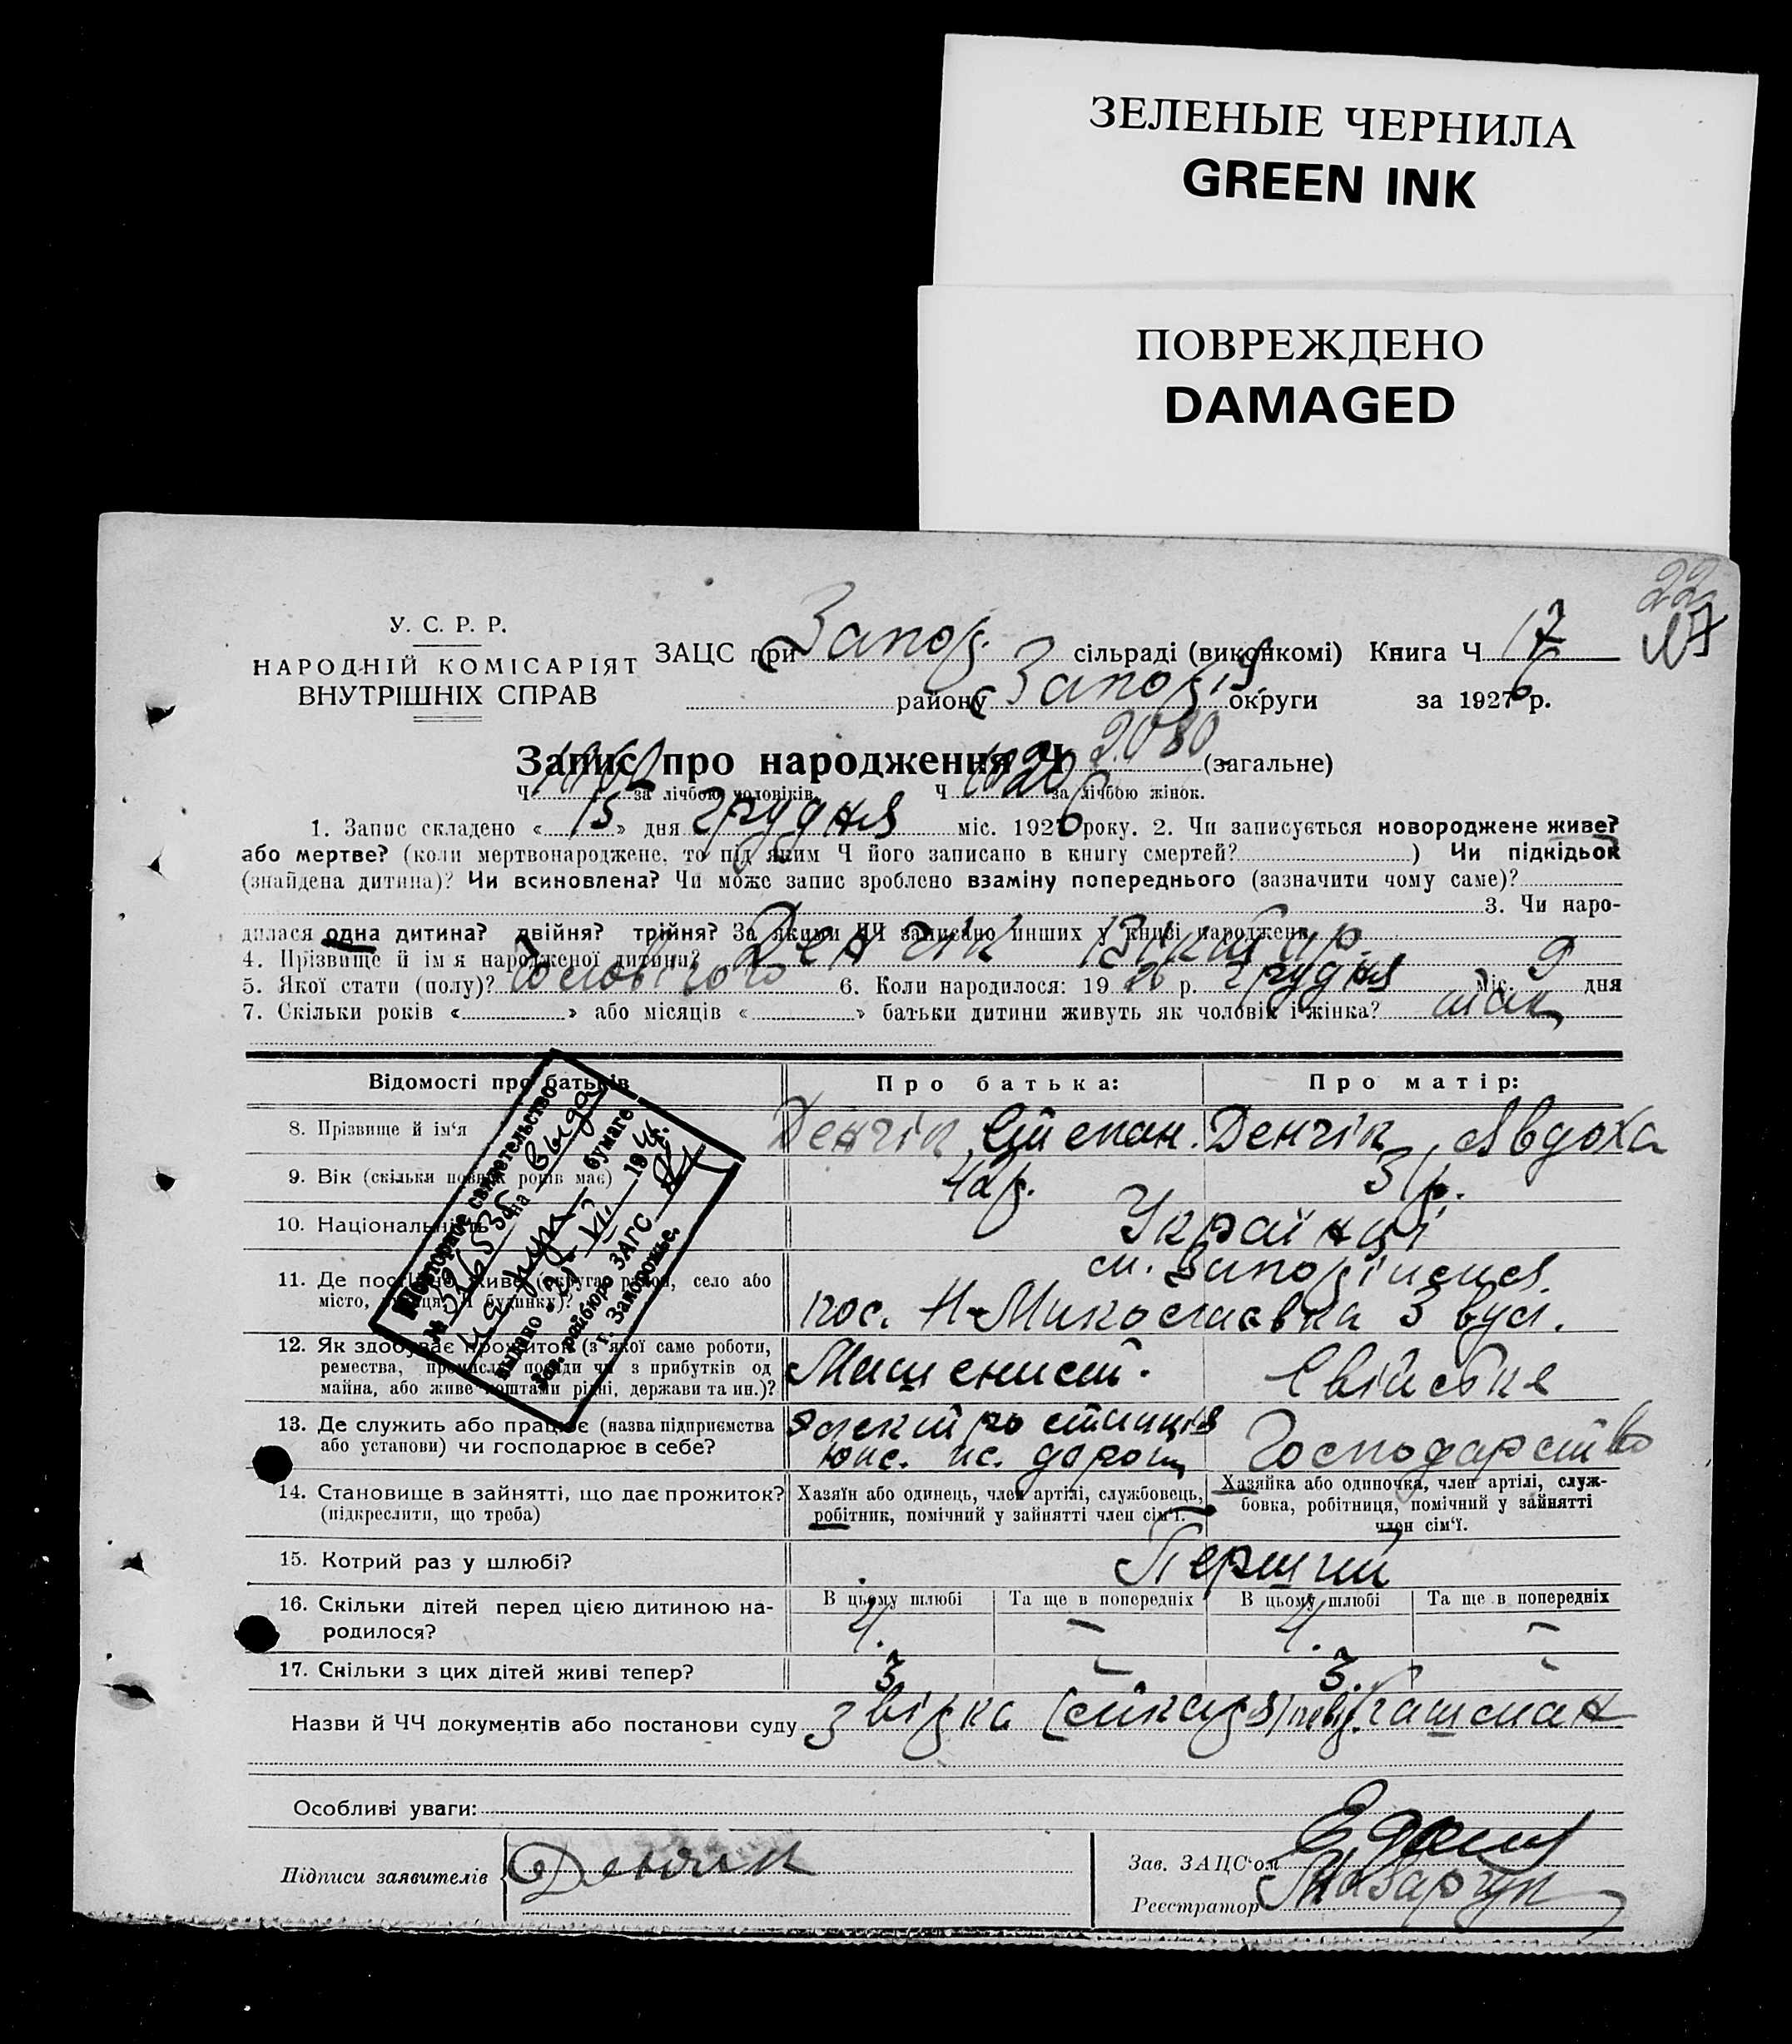 ЗЕЛЕНЫЕ ЧЕРНИЛА
GREEN INK
ПОВРЕЖДЕНО
DAMAGED
22
У. С. Р. Р.
НАРОДНІЙ КОМІСАРІЯТ
ВНУТРІШНІХ СПРАВ
ЗАЦС при Запор. сільраді (виконкомі) Книга Ч 17
району Запоріз округи за 1926 р.
Запис про народження Ч 2080 (загальне)
Ч 1060 за лічбою чоловіків. Ч 1020 за лічбою жінок.
1. Запис складено « 15 » дня грудня міс. 1926 року. 2. Чи записується новороджене живе?
або мертве? (коли мертвонароджене, то під яким Ч його записано в книгу смертей? ) Чи підкідьок
(знайдена дитина)? Чи всиновлена? Чи може запис зроблено взаміну попереднього (зазначити чому саме)?
3. Чи наро-
дилася одна дитина? двійня? трійня? За якими ЧЧ записано инших у книзі народжень
4. Прізвище й ім'я народженої дитини? Денчік
5. Якої стати (полу)? Чоловічого 6. Коли народилося: 1926 р. грудня міс. 9 дня
7. Скільки років « » або місяців « » батьки дитини живуть як чоловік і жінка? так
Відомості про батьків Про батька: Про матір:
8. Прізвище й ім'я Денчік Степан. Денчік Явдоха
9. Вік (скільки повних років має) 42 р. 31 р.
10. Національність Українці
11. Де постійно живе (округа, район, село або
місто, вулиця, Ч будинку)? ст. Запоріжжя
пос. Н-Миколаєвка 3 вул.
12. Як здобуває прожиток (з якої саме роботи,
ремества, промислу, посади чи з прибутків од
майна, або живе коштами рідні, держави та ин.)? Машеніст. Свійське
13. Де служить або працює (назва підприємства
або установи) чи господарює в себе? станція Господарство
14. Становище в зайнятті, що дає прожиток?
(підкреслити, що треба)
Хазяїн або одинець, член артілі, службовець,
робітник, помічний у зайнятті член сім'ї.
Хазяйка або одиночка, член артілі, служ-
бовка, робітниця, помічний у зайнятті
член сім'ї.
15. Котрий раз у шлюбі? Перший
16. Скільки дітей перед цією дитиною на-
родилося?
В цьому шлюбі Та ще в попередніх В цьому шлюбі Та ще в попередніх
4. – 4. –
17. Скільки з цих дітей живі тепер? 3 – 3. –
Назви й ЧЧ документів або постанови суду звізка
Особливі уваги:
Підписи заявителів Денчик
Зав. ЗАЦС'ом
Реєстратор Назарчук
Повторное свидетельство
№ на
бумаге
выдано 21 VII 19
Зав. райбюро ЗАГС
г. Запорожье.